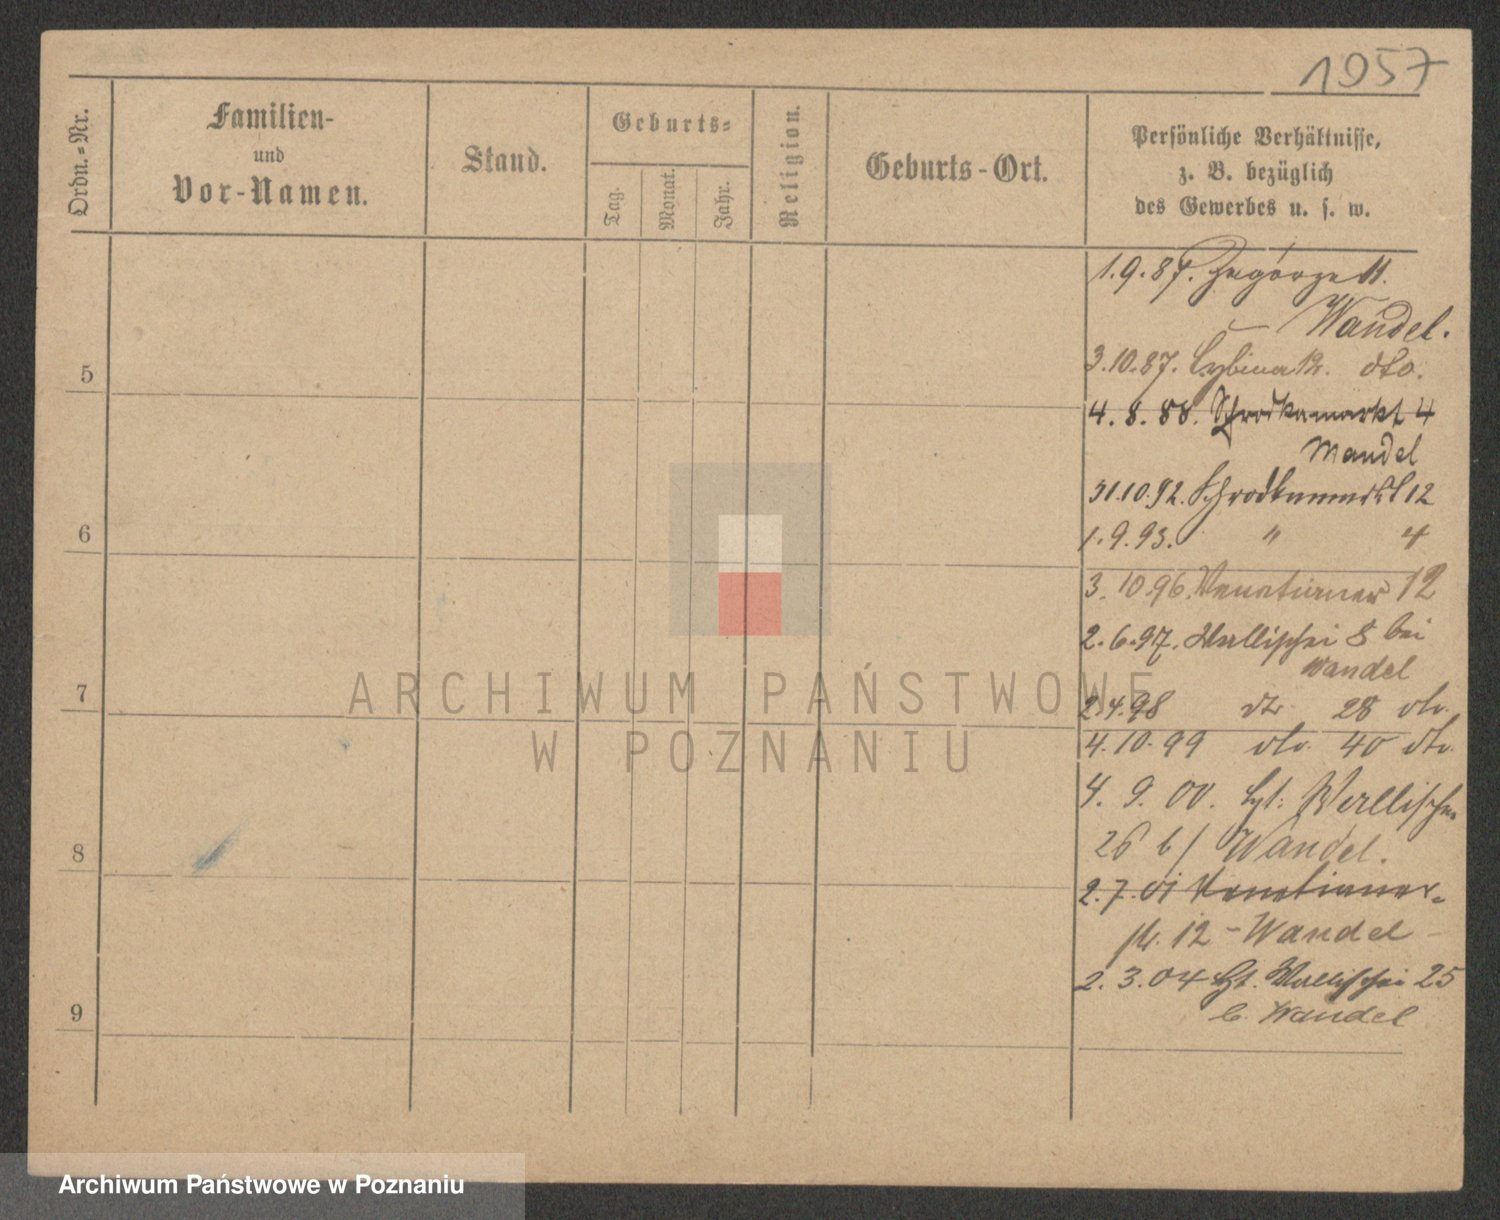 1957
Ordn.-Nr.
Familien-
und
Vor-Namen.
Stand.
Geburts-
Tag.
Monat.
Jahr.
Religion.
Geburts-Ort.
Persönliche Verhältnisse,
z. B. bezüglich
des Gewerbes u. s. w.
1.9.87. Zagórze 11.
Wandel.
3.10.87. Cybina 12. dto.
5
4.8.88. Schrodkamarkt 4
Wandel
31.10.92. Schrodkamarkt 12
1.9.93. " 4
6
3.10.96. Venetianer 12
2.6.97. Wallischei 8 bei
Wandel
7
2.4.98 dto 28 dto.
4.10.99 dto. 40 dto.
4.9.00. Wallischei
26 b/ Wandel.
8
2.7.01 Venetianer-
str. 12 - Wandel -
2.3.04 Wallischei 25
b. Wandel
9
ARCHIWUM PAŃSTWOWE
W POZNANIU
Archiwum Państwowe w Poznaniu